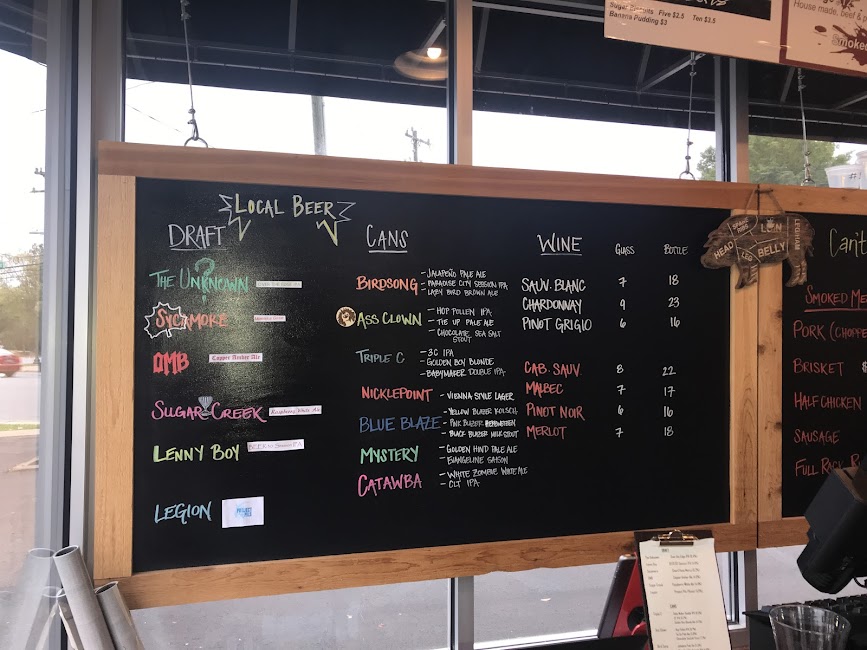 Sugar Biscuits Five $2.5 Ten $3.5
Banana Pudding $3
House made, beef &
Smoked
LOCAL BEER
DRAFT
THE UNKNOWN
SYCAMORE
OMB
Copper Amber Ale
SUGAR CREEK
Raspberry White Ale
LENNY BOY
LEGION
PROJECT
CANS
BIRDSONG
- JALAPEÑO PALE ALE
- PARADISE CITY SESSION IPA
- LAZY BIRD BROWN ALE
ASS CLOWN
- HOP POLLEN IPA
- TIE UP PALE ALE
- CHOCOLATE SEA SALT STOUT
TRIPLE C
- 3C IPA
- GOLDEN BOY BLONDE
- BABYMAKER DOUBLE IPA
NICKLEPOINT
- VIENNA STYLE LAGER
BLUE BLAZE
- YELLOW BLAZER KOLSCH
- PINK BLAZER
- BLACK BLAZER MILK STOUT
MYSTERY
- GOLDEN HIND PALE ALE
- EVANGELINE SAISON
CATAWBA
- WHITE ZOMBIE WHITE ALE
- CLT IPA
WINE GLASS BOTTLE
SAUV. BLANC 7 18
CHARDONNAY 9 23
PINOT GRIGIO 6 16
CAB. SAUV. 8 22
MALBEC 7 17
PINOT NOIR 6 16
MERLOT 7 18
HEAD
SPARE RIBS
LOIN
LEG
BELLY
Can't
SMOKED ME
PORK (CHOPPE
BRISKET $
HALF CHICKEN
SAUSAGE
FULL RACK